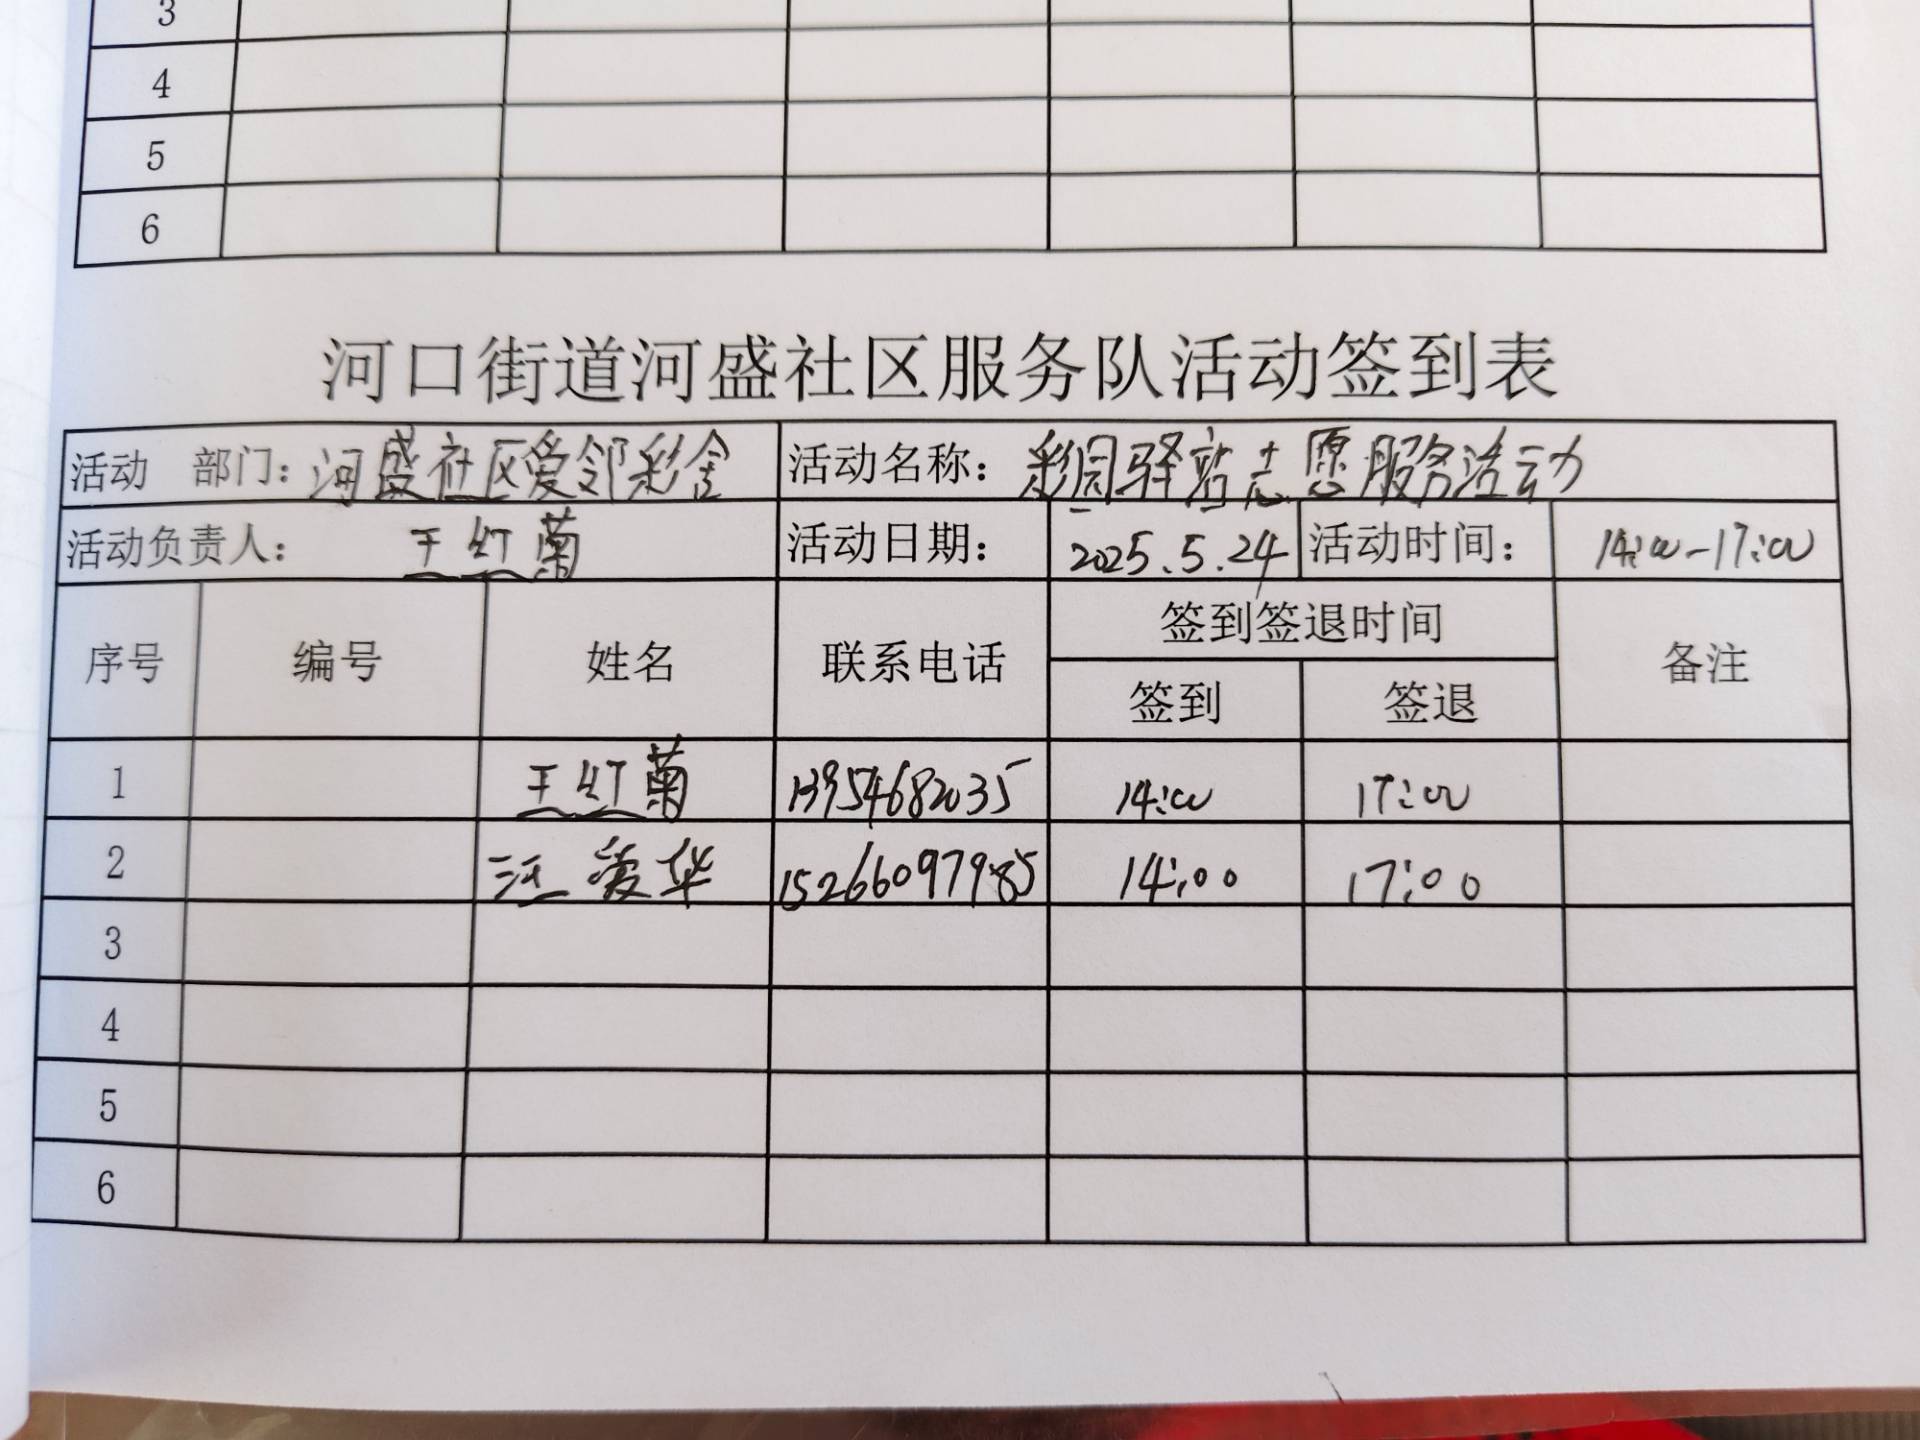 3
4
5
6
河口街道河盛社区服务队活动签到表
活动 部门：河盛社区爱邻彩舍 活动名称：彩园驿站志愿服务活动
活动负责人：王红菊 活动日期：2025.5.24 活动时间：14:00-17:00
序号 编号 姓名 联系电话 签到签退时间 备注
签到 签退
1 王红菊 13954682035 14:00 17:00
2 汪爱华 15266097985 14:00 17:00
3
4
5
6